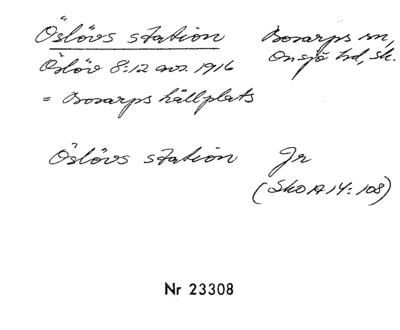 Öslövs station Bosarps sn,
Öslöv 8:12 avs. 1916 Onsjö hd, sk.
= Bosarps hållplats
Öslövs station Jr
(SkO A 14: 108)
Nr 23308